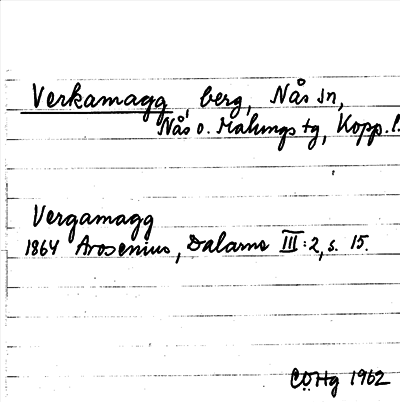 Verkamagg, berg, Nås sn,
Nås o. Malungs tg, Kopp. l.
Vergamagg
1864 Arosenius, Dalarne III:2, s. 15.
CÖHg 1962